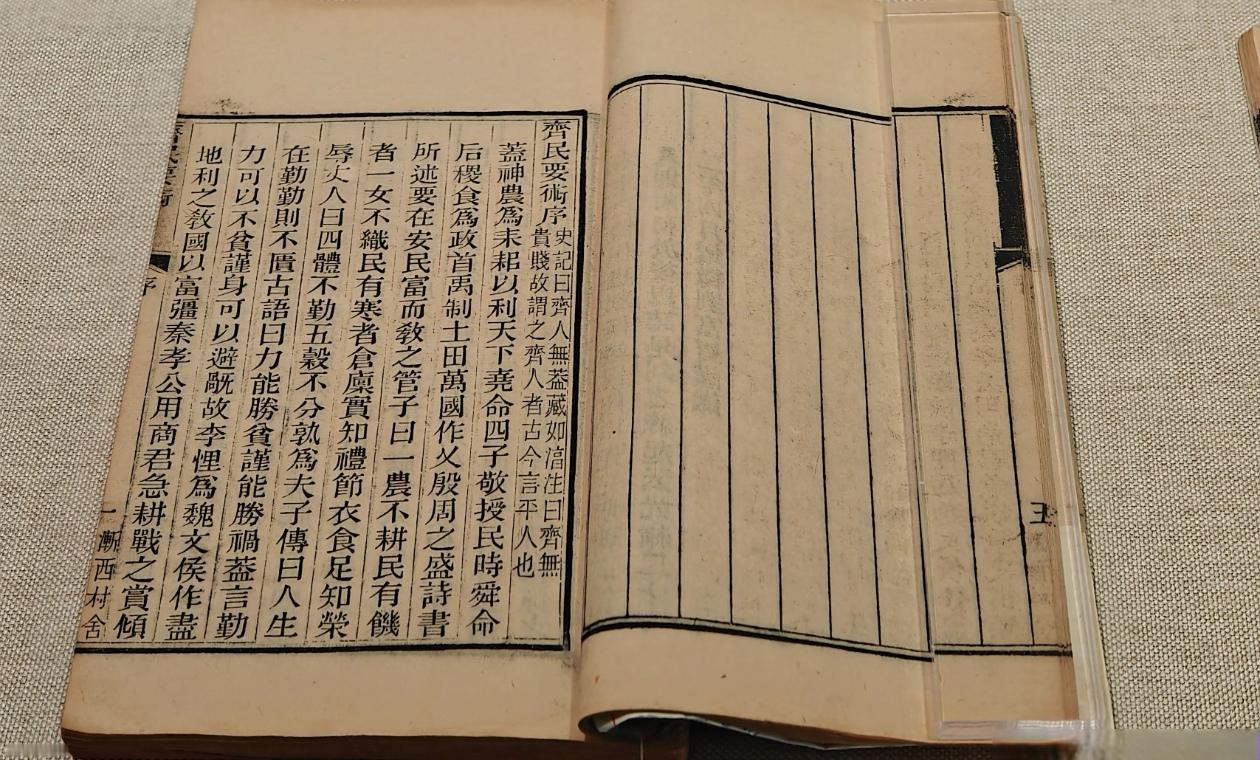 齊民要術序
史記曰齊人無葢藏如湻注曰齊無
貴賤故謂之齊人者古今言平人也
葢神農爲耒耜以利天下堯命四子敬授民時舜命
后稷食爲政首禹制土田萬國作乂殷周之盛詩書
所述要在安民富而敎之管子曰一農不耕民有饑
者一女不織民有寒者倉廩實知禮節衣食足知榮
辱丈人曰四體不勤五穀不分孰爲夫子傳曰人生
在勤勤則不匱古語曰力能勝貧謹能勝禍葢言勤
力可以不貧謹身可以避禍故李悝爲魏文侯作盡
地利之敎國以富彊秦孝公用商君急耕戰之賞傾
齊民要術 序 一 漸西村舍